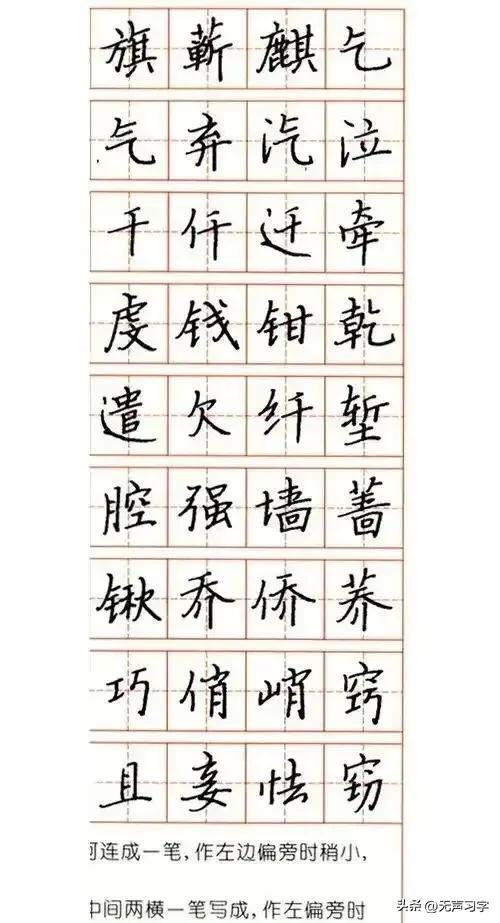 旗 蕲 麒 乞
气 弃 汽 泣
千 仟 迁 牵
虔 钱 钳 乾
遣 欠 纤 堑
腔 强 墙 蔷
锹 乔 侨 荞
巧 俏 峭 窍
且 妾 怯 窃
可连成一笔，作左边偏旁时稍小，
中间两横一笔写成，作左偏旁时
头条 @无声习字